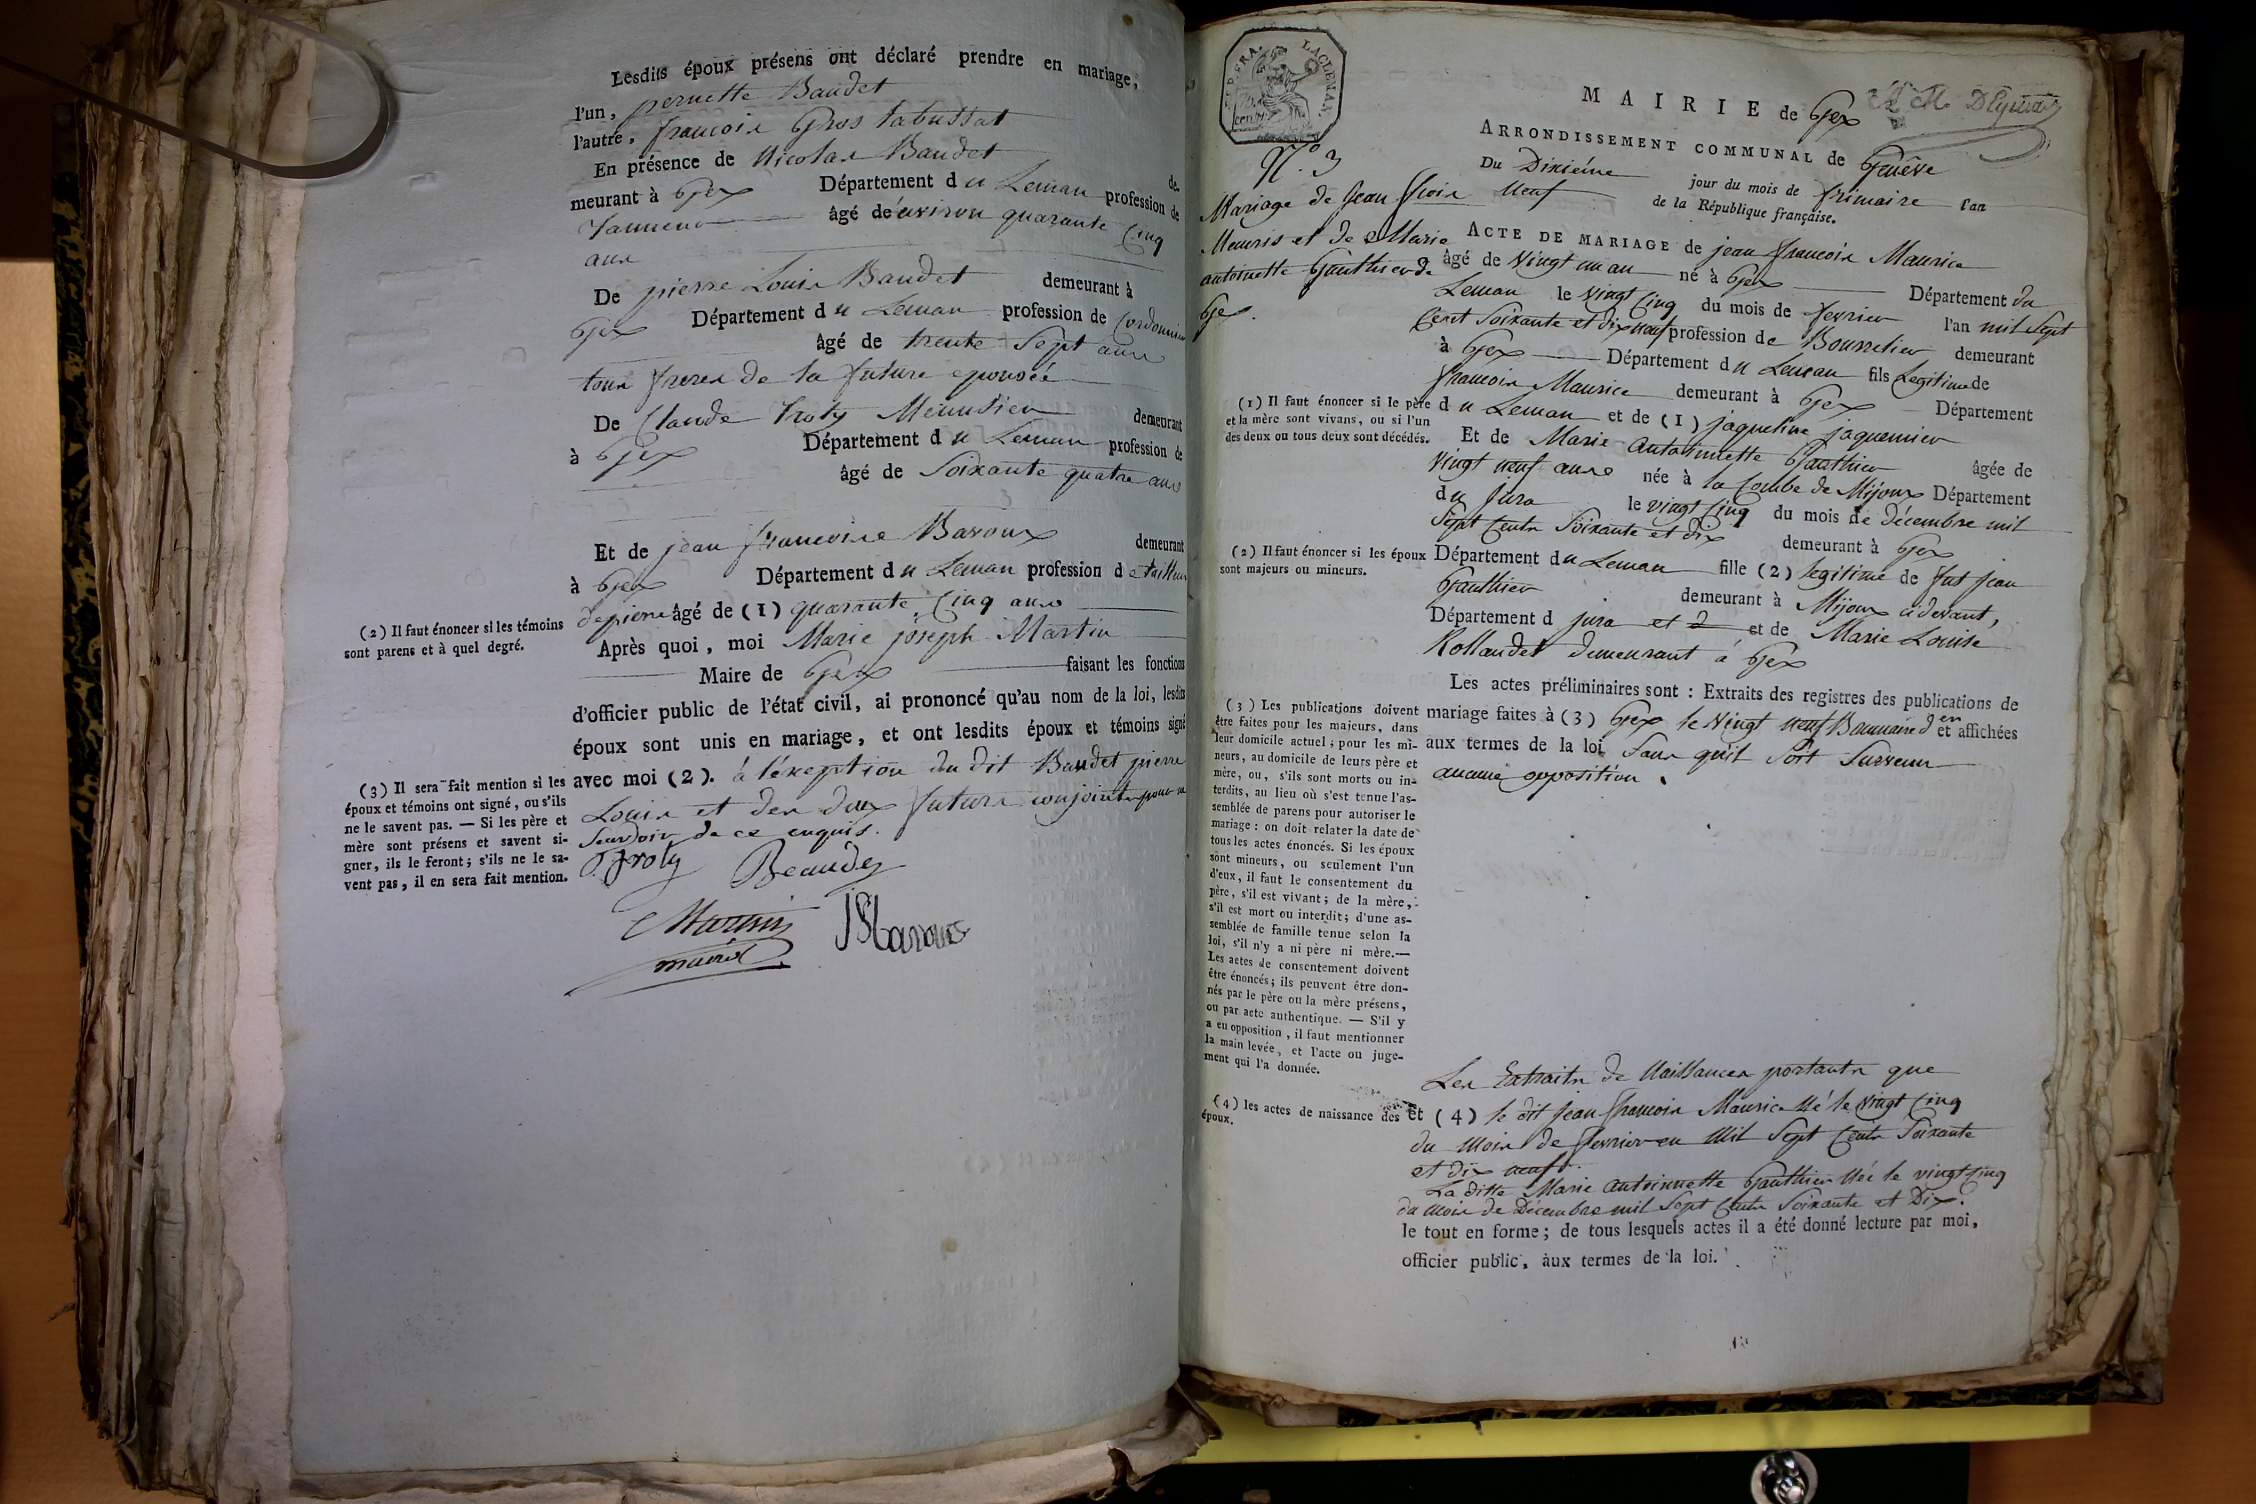 Lesdits époux présens ont déclaré prendre en mariage,
l'un, pernette Baudet
l'autre, francois Gros tabussat
En présence de Nicolas Baudet de-
meurant à Gex Département du Leman profession de
Tanneur âgé de environ quarante Cinq
ans
De pierre Louis Baudet demeurant à
Gex Département du Leman profession de Cordonnier
âgé de trente Sept ans
tous freres de la future epousée
De Claude Troly Menusier demeurant
à Gex Département du Leman profession de
âgé de Soixante quatre ans
Et de jean francoise Baroux demeurant
à Gex Département du Leman profession de tailleur
de pierre âgé de (1) quarante Cinq ans
Après quoi, moi Marie joseph Martin
Maire de Gex faisant les fonctions
d'officier public de l'état civil, ai prononcé qu'au nom de la loi, lesdits
époux sont unis en mariage, et ont lesdits époux et témoins signé
avec moi (2). à l'exeption du dit Baudet pierre
Louis et des deux futurs conjoints pour ne
Scavoir de ce enquis.
Troly Beaudet
Martin
maire
JBaroux
(2) Il faut énoncer si les témoins
sont parens et à quel degré.
(3) Il sera fait mention si les
époux et témoins ont signé, ou s'ils
ne le savent pas. — Si les père et
mère sont présens et savent si-
gner, ils le feront; s'ils ne le sa-
vent pas, il en sera fait mention.
MAIRIE de Gex
ARRONDISSEMENT COMMUNAL de Genêve
Du Dixiéme jour du mois de frimaire l'an
Neuf de la République française.
N.° 3
Mariage de Jean fcois
Mauris et de Marie
antoinette Gauthier de
Gex.
ACTE DE MARIAGE de jean francois Maurice
âgé de Vingt un an né à Gex Département du
Leman le Vingt Cinq du mois de fevrier l'an mil Sept
Cent Soixante et dix neuf profession de Bourrelier demeurant
à Gex Département du Leman fils Legitime de
francois Maurice demeurant à Gex Département
du Leman et de (1) jaqueline jaquemier
Et de Marie Antoinette Gauthier âgée de
Vingt neuf ans née à la Combe de Mijoux Département
du Jura le vingt Cinq du mois de décembre mil
Sept Cents Soixante et dix demeurant à Gex
Département du Leman fille (2) legitime de fut jean
Gauthier demeurant à Mijoux cidevant,
Département d jura et d et de Marie Louise
Rollandet demeurant à Gex
Les actes préliminaires sont : Extraits des registres des publications de
mariage faites à (3) Gex le Vingt neuf Brumaire der et affichées
aux termes de la loi Sans qu'il Soit Survenu
aucune opposition.
(1) Il faut énoncer si le père
et la mère sont vivans, ou si l'un
des deux ou tous deux sont décédés.
(2) Il faut énoncer si les époux
sont majeurs ou mineurs.
(3) Les publications doivent
être faites pour les majeurs, dans
leur domicile actuel; pour les mi-
neurs, au domicile de leurs père et
mère, ou, s'ils sont morts ou in-
terdits, au lieu où s'est tenue l'as-
semblée de parens pour autoriser le
mariage : on doit relater la date de
tous les actes énoncés. Si les époux
sont mineurs, ou seulement l'un
d'eux, il faut le consentement du
père, s'il est vivant; de la mère,
s'il est mort ou interdit; d'une as-
semblée de famille tenue selon la
loi, s'il n'y a ni père ni mère.—
Les actes de consentement doivent
être énoncés; ils peuvent être don-
nés par le père ou la mère présens,
ou par acte authentique. — S'il y
a eu opposition, il faut mentionner
la main levée, et l'acte ou juge-
ment qui l'a donnée.
(4) les actes de naissance des
époux.
Les Extraits de Naissances portants que
et (4) le dit jean francois Maurice Né le vingt Cinq
du mois de fevrier en Mil Sept Cents Soixante
et dix neuf.
La ditte Marie antoinette Gauthier Née le vingt Cinq
du mois de Décembre mil Sept Cents Soixante et Dix.
le tout en forme; de tous lesquels actes il a été donné lecture par moi,
officier public, aux termes de la loi.